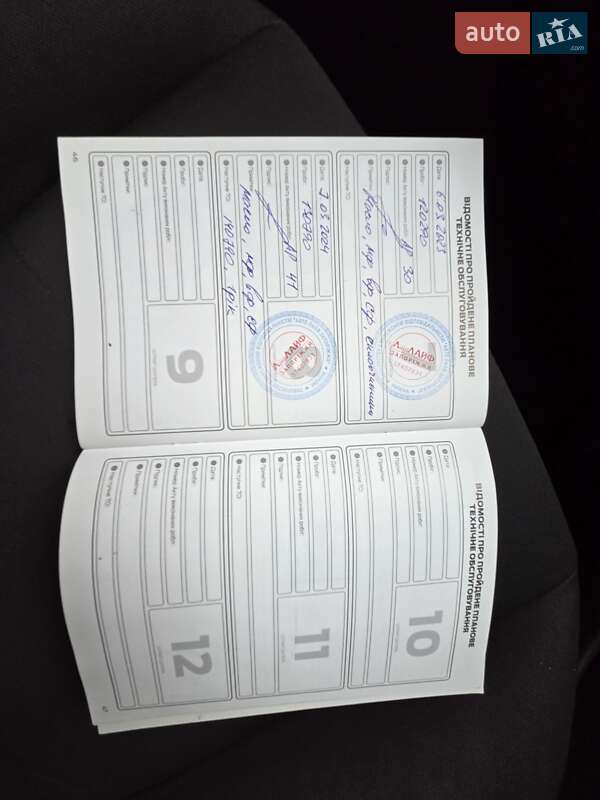 auto RIA.com
ВІДОМОСТІ ПРО ПРОЙДЕНЕ ПЛАНОВЕ
ТЕХНІЧНЕ ОБСЛУГОВУВАННЯ
Дата: 6 03 2023
Пробіг: 120290
Номер Акту виконаних робіт: АР 30
Підпис:
Примітки: Масло, мф, вф, сф,
Наступне ТО:
Дата: 7 03 2024
Пробіг: 130790
Номер Акту виконаних робіт: АР 44
Підпис:
Примітки: масло, мф, вф, сф
Наступне ТО: 140790. 1рік
Дата:
Пробіг:
Номер Акту виконаних робіт:
Підпис:
Примітки:
Наступне ТО:
9
46
ВІДОМОСТІ ПРО ПРОЙДЕНЕ ПЛАНОВЕ
ТЕХНІЧНЕ ОБСЛУГОВУВАННЯ
Дата:
Пробіг:
Номер Акту виконаних робіт:
Підпис:
Примітки:
Наступне ТО:
10
Дата:
Пробіг:
Номер Акту виконаних робіт:
Підпис:
Примітки:
Наступне ТО:
11
Дата:
Пробіг:
Номер Акту виконаних робіт:
Підпис:
Примітки:
Наступне ТО:
12
47